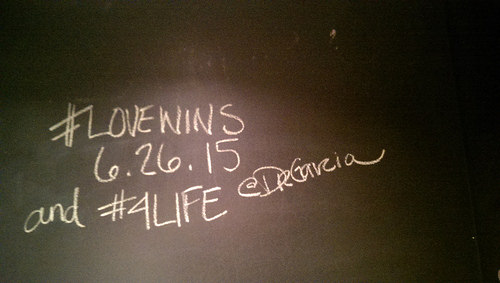 #LOVEWINS
6.26.15
and #4LIFE
@DeGarcia